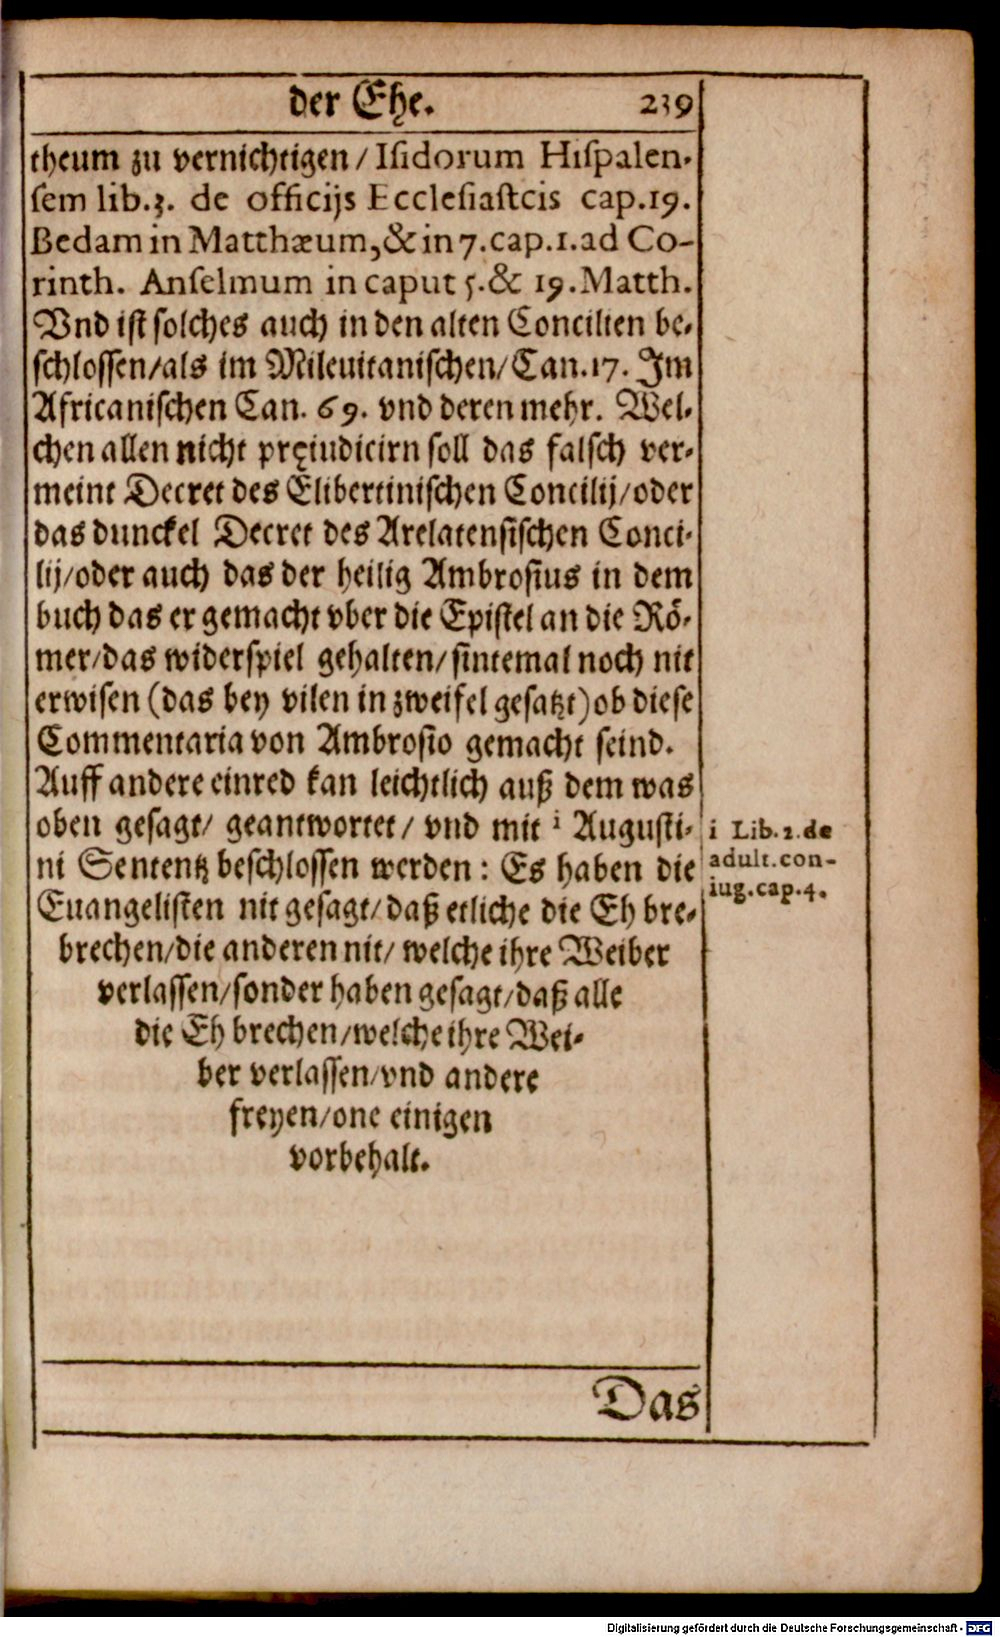 der Ehe. 239
theum zu vernichtigen/ Isidorum Hispalen-
sem lib.3. de officijs Ecclesiastcis cap.19.
Bedam in Matthæum,& in 7.cap.1.ad Co-
rinth. Anselmum in caput 5.& 19.Matth.
Vnd ist solches auch in den alten Concilien be-
schlossen/als im Mileuitanischen/ Can.17. Im
Africanischen Can. 69. vnd deren mehr. Wel-
chen allen nicht pręiudicirn soll das falsch ver-
meint Decret des Elibertinischen Concilij/oder
das dunckel Decret des Arelatensischen Conci-
lij/oder auch das der heilig Ambrosius in dem
buch das er gemacht vber die Epistel an die Rö-
mer/das widerspiel gehalten/ sintemal noch nit
erwisen (das bey vilen in zweifel gesatzt) ob diese
Commentaria von Ambrosio gemacht seind.
Auff andere einred kan leichtlich auß dem was
oben gesagt/ geantwortet/ vnd mit i Augusti-
ni Sententz beschlossen werden: Es haben die
Euangelisten nit gesagt/ daß etliche die Eh bre-
brechen/die anderen nit/ welche ihre Weiber
verlassen/sonder haben gesagt/daß alle
die Eh brechen/welche ihre Wei-
ber verlassen/vnd andere
freyen/one einigen
vorbehalt.
i Lib.2.de
adult.con-
iug.cap.4.
Das
Digitalisierung gefördert durch die Deutsche Forschungsgemeinschaft - DFG